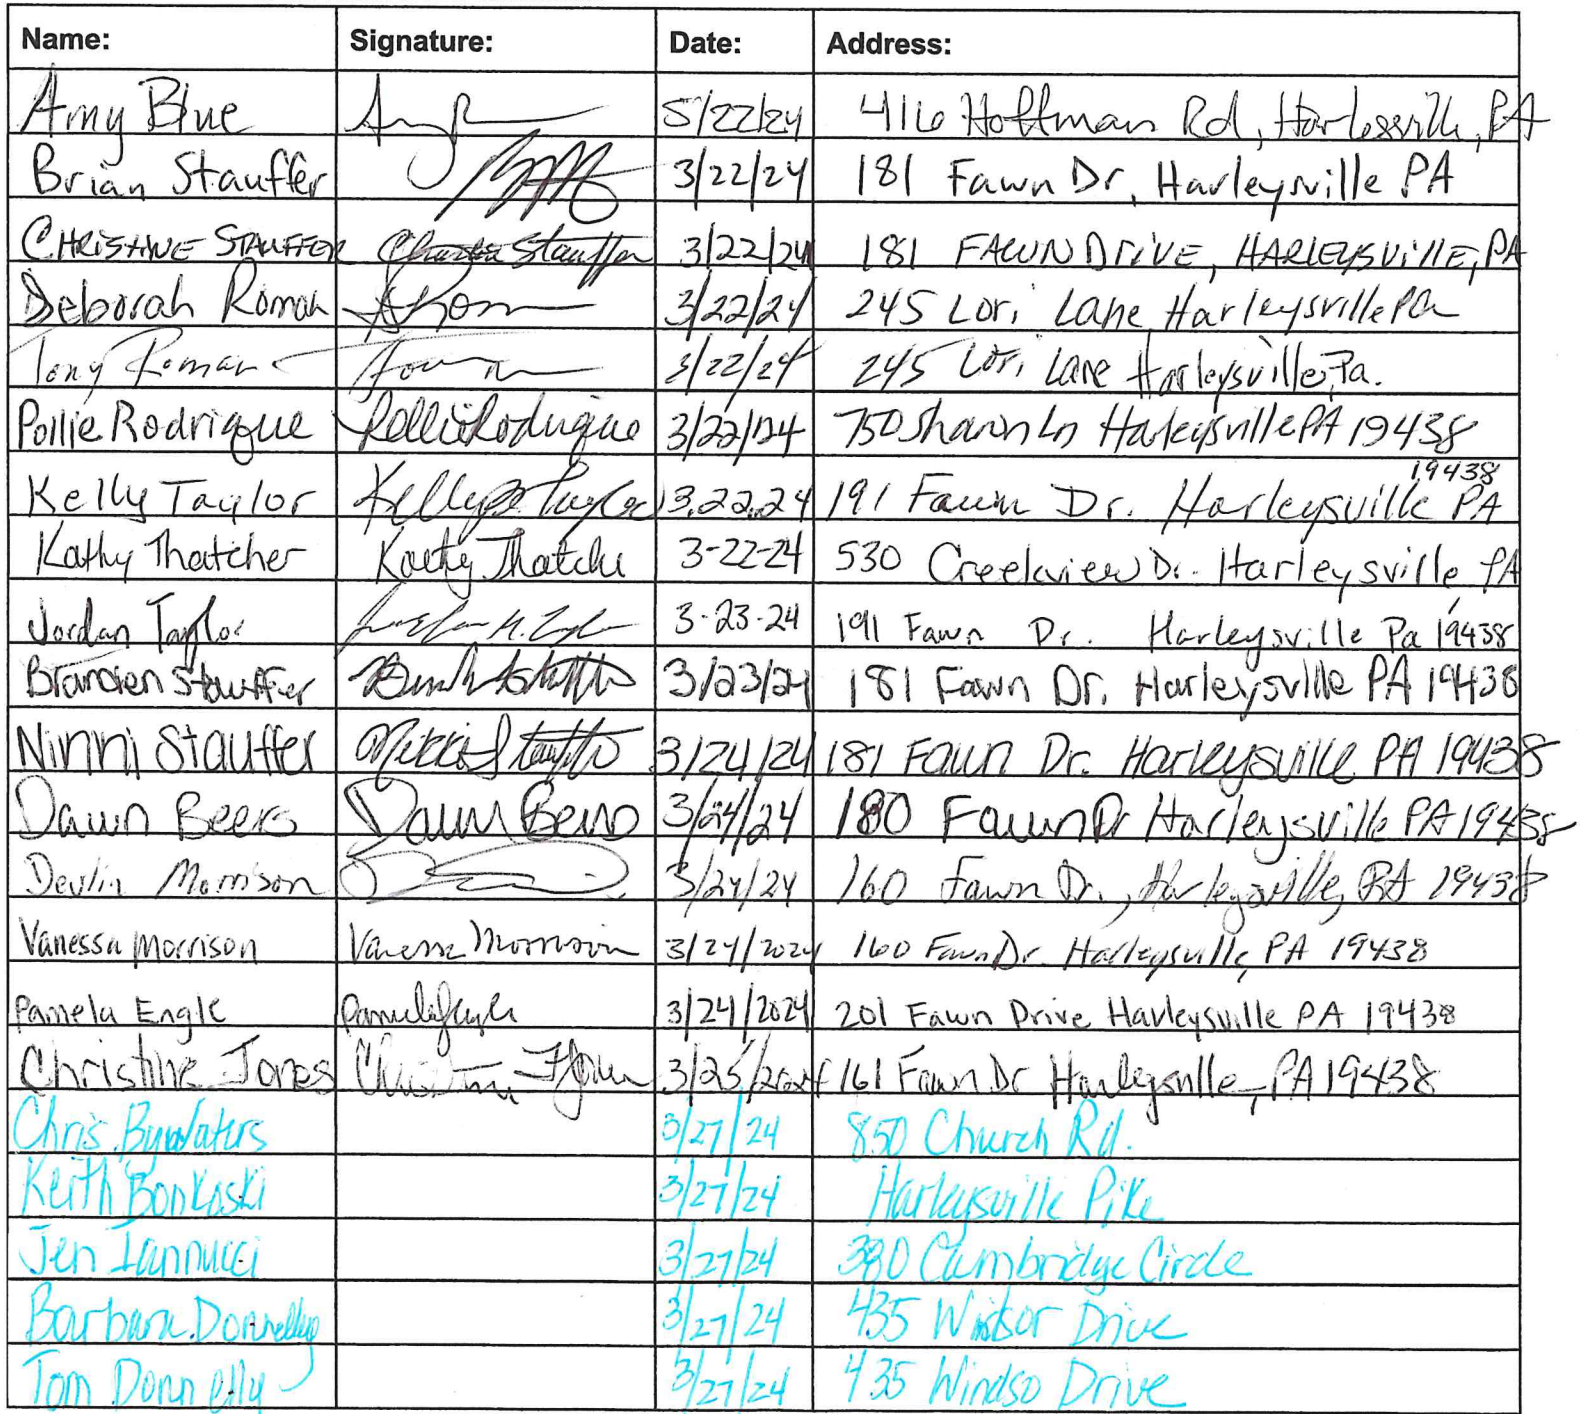 Name: Signature: Date: Address:
Amy Blue 5/22/24 416 Hoffman Rd, Harlesville, PA
Brian Stauffer 3/22/24 181 Fawn Dr, Harleysville PA
CHRISTINE STAUFFER Christine Stauffer 3/22/24 181 FAWN DRIVE, HARLEYSVILLE, PA
Deborah Roman 3/22/24 245 Lori Lane Harleysville Pa
Tony Roman 3/22/24 245 Lori Lane Harleysville, Pa.
Pollie Rodrigque Pollie Rodrigue 3/22/24 750 Sharon Ln Harleysville PA 19438
19438
Kelly Taylor Kelly Taylor 3.22.24 191 Fawn Dr. Harleysville PA
Kathy Thatcher Kathy Thatche 3-22-24 530 Creekview Dr. Harleysville, PA
Jordan Taylor 3-23-24 191 Fawn Dr. Harleysville Pa 19438
Branden Stauffer 3/23/24 181 Fawn Dr. Harleysville PA 19438
Ninni Stauffer Nikki Stauffer 3/24/24 181 Fawn Dr. Harleysville PA 19438
Dawn Beers Dawn Beers 3/24/24 180 Fawn Dr Harleysville PA 19438
Devlin Morrison 3/24/24 160 Fawn Dr., Harleysville, PA 19438
Vanessa Morrison Vanessa Morrison 3/24/2024 160 Fawn Dr. Harleysville, PA 19438
Pamela Engle Pamela Engle 3/24/2024 201 Fawn Drive Harleysville PA 19438
Christine Jones 3/25/2024 161 Fawn Dr Harleysville, PA 19438
Chris Bywaters 3/27/24 850 Church Rd.
Keith Bonkoski 3/27/24 Harleysville Pike
Jen Iannucci 3/27/24 380 Cambridge Circle
Barbara Donnelly 3/27/24 435 Windsor Drive
Tom Donnelly 3/27/24 435 Windso Drive